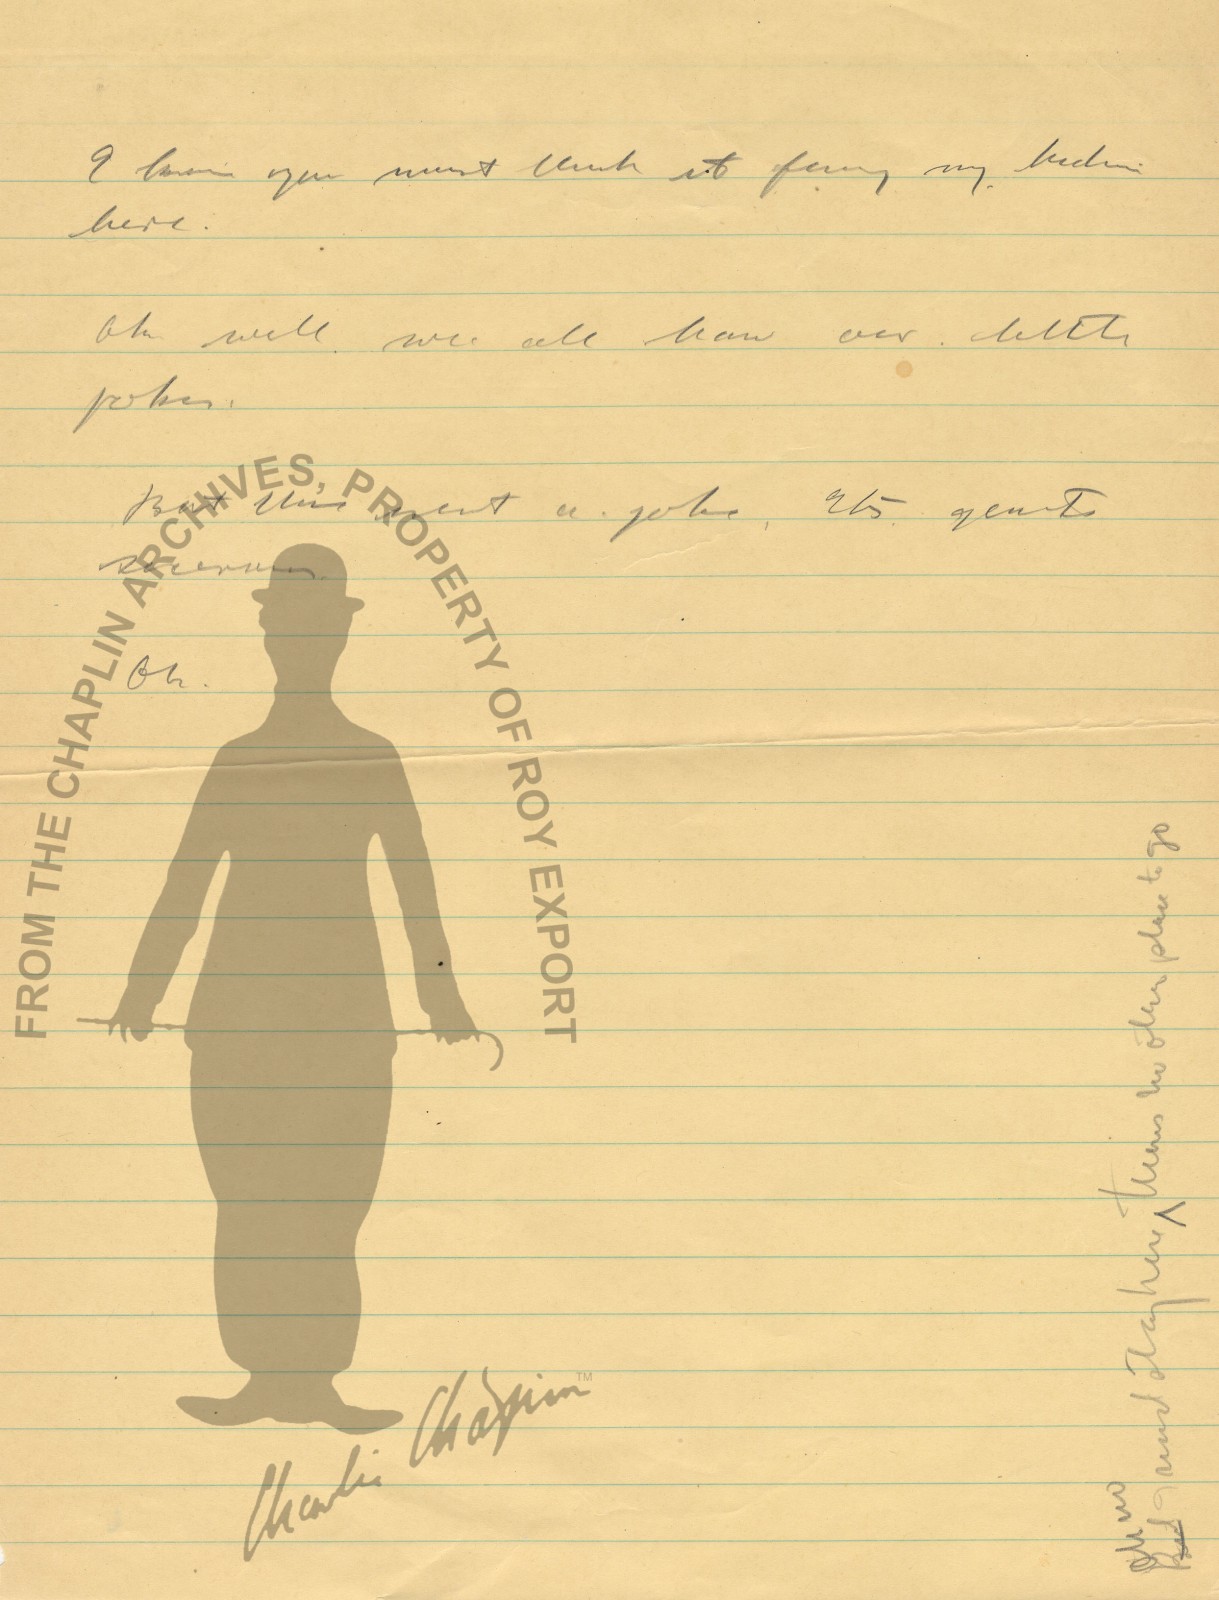 I know you must think it funny my being
here.
Oh well we all have our little
jokes.
But this isn't a joke, It's quite
serious.
Oh.
Oh no
But I must stay here ^ There's no other place to go
FROM THE CHAPLIN ARCHIVES, PROPERTY OF ROY EXPORT
Charlie Chaplin™